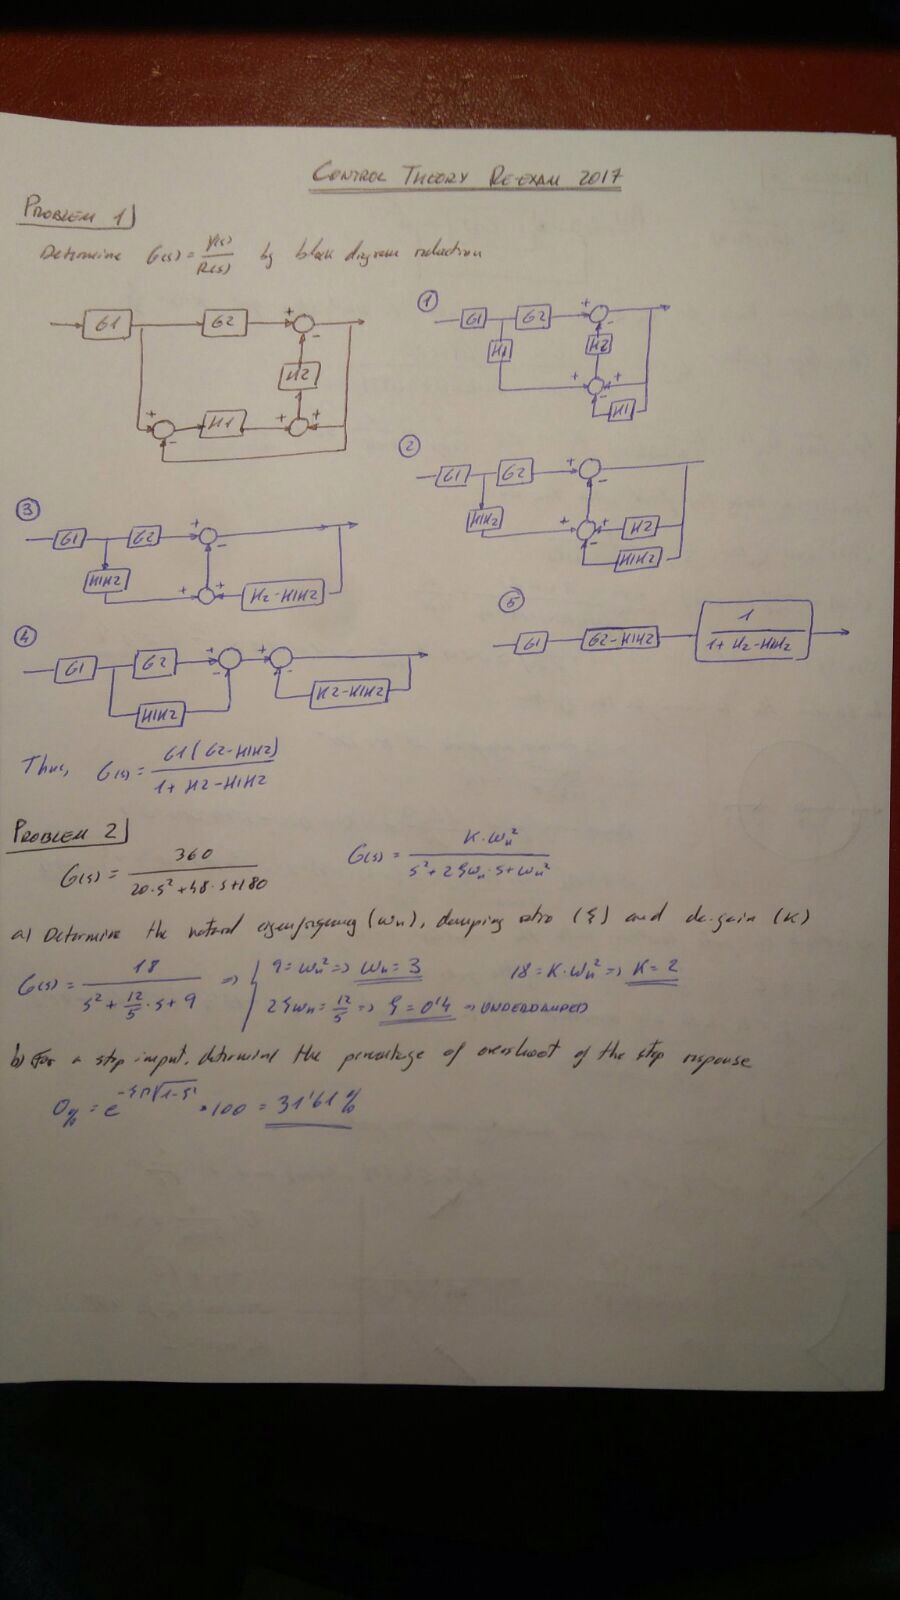 CONTROL THEORY RE-EXAM 2017
PROBLEM 1)
Determine G(s) = Y(s)/R(s) by block diagram reduction
G1 G2 + -
H2
+ - H1 + +
① G1 G2 + -
H1 H2
+ + -
H1
② G1 G2 + -
H1H2 + + H2
- H1H2
③ G1 G2 + -
H1H2 + + H2-H1H2
④ G1 G2 + - + -
H1H2 H2-H1H2
⑤ G1 G2-H1H2 1/(1+H2-H1H2)
Thus, G(s) = G1(G2-H1H2)/(1+H2-H1H2)
PROBLEM 2)
G(s) = 360/(20·s²+48·s+180) G(s) = K·ωn²/(s²+2ξωn·s+ωn²)
a) Determine the natural eigenfrequency (ωn), damping ratio (ξ) and dc-gain (K)
G(s) = 18/(s²+12/5·s+9) => { 9=ωn² => ωn=3 18=K·ωn² => K=2
2ξωn=12/5 => ξ=0'4 → UNDERDAMPED
b) For a step input, determine the percentage of overshoot of the step response
O% = e^(-ξπ√(1-ξ²)) ·100 = 31'61%